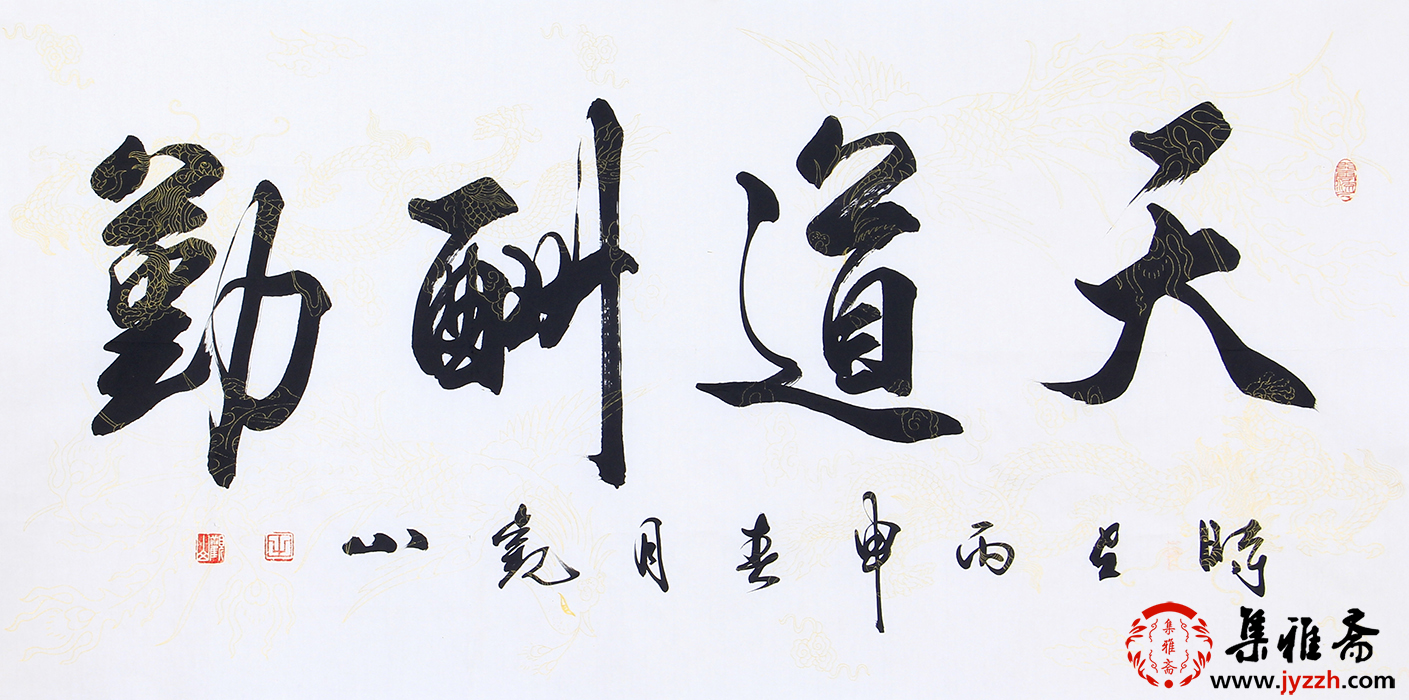 天道酬勤
時在丙申春月觀山
集雅斋
集雅斋
www.jyzzh.com